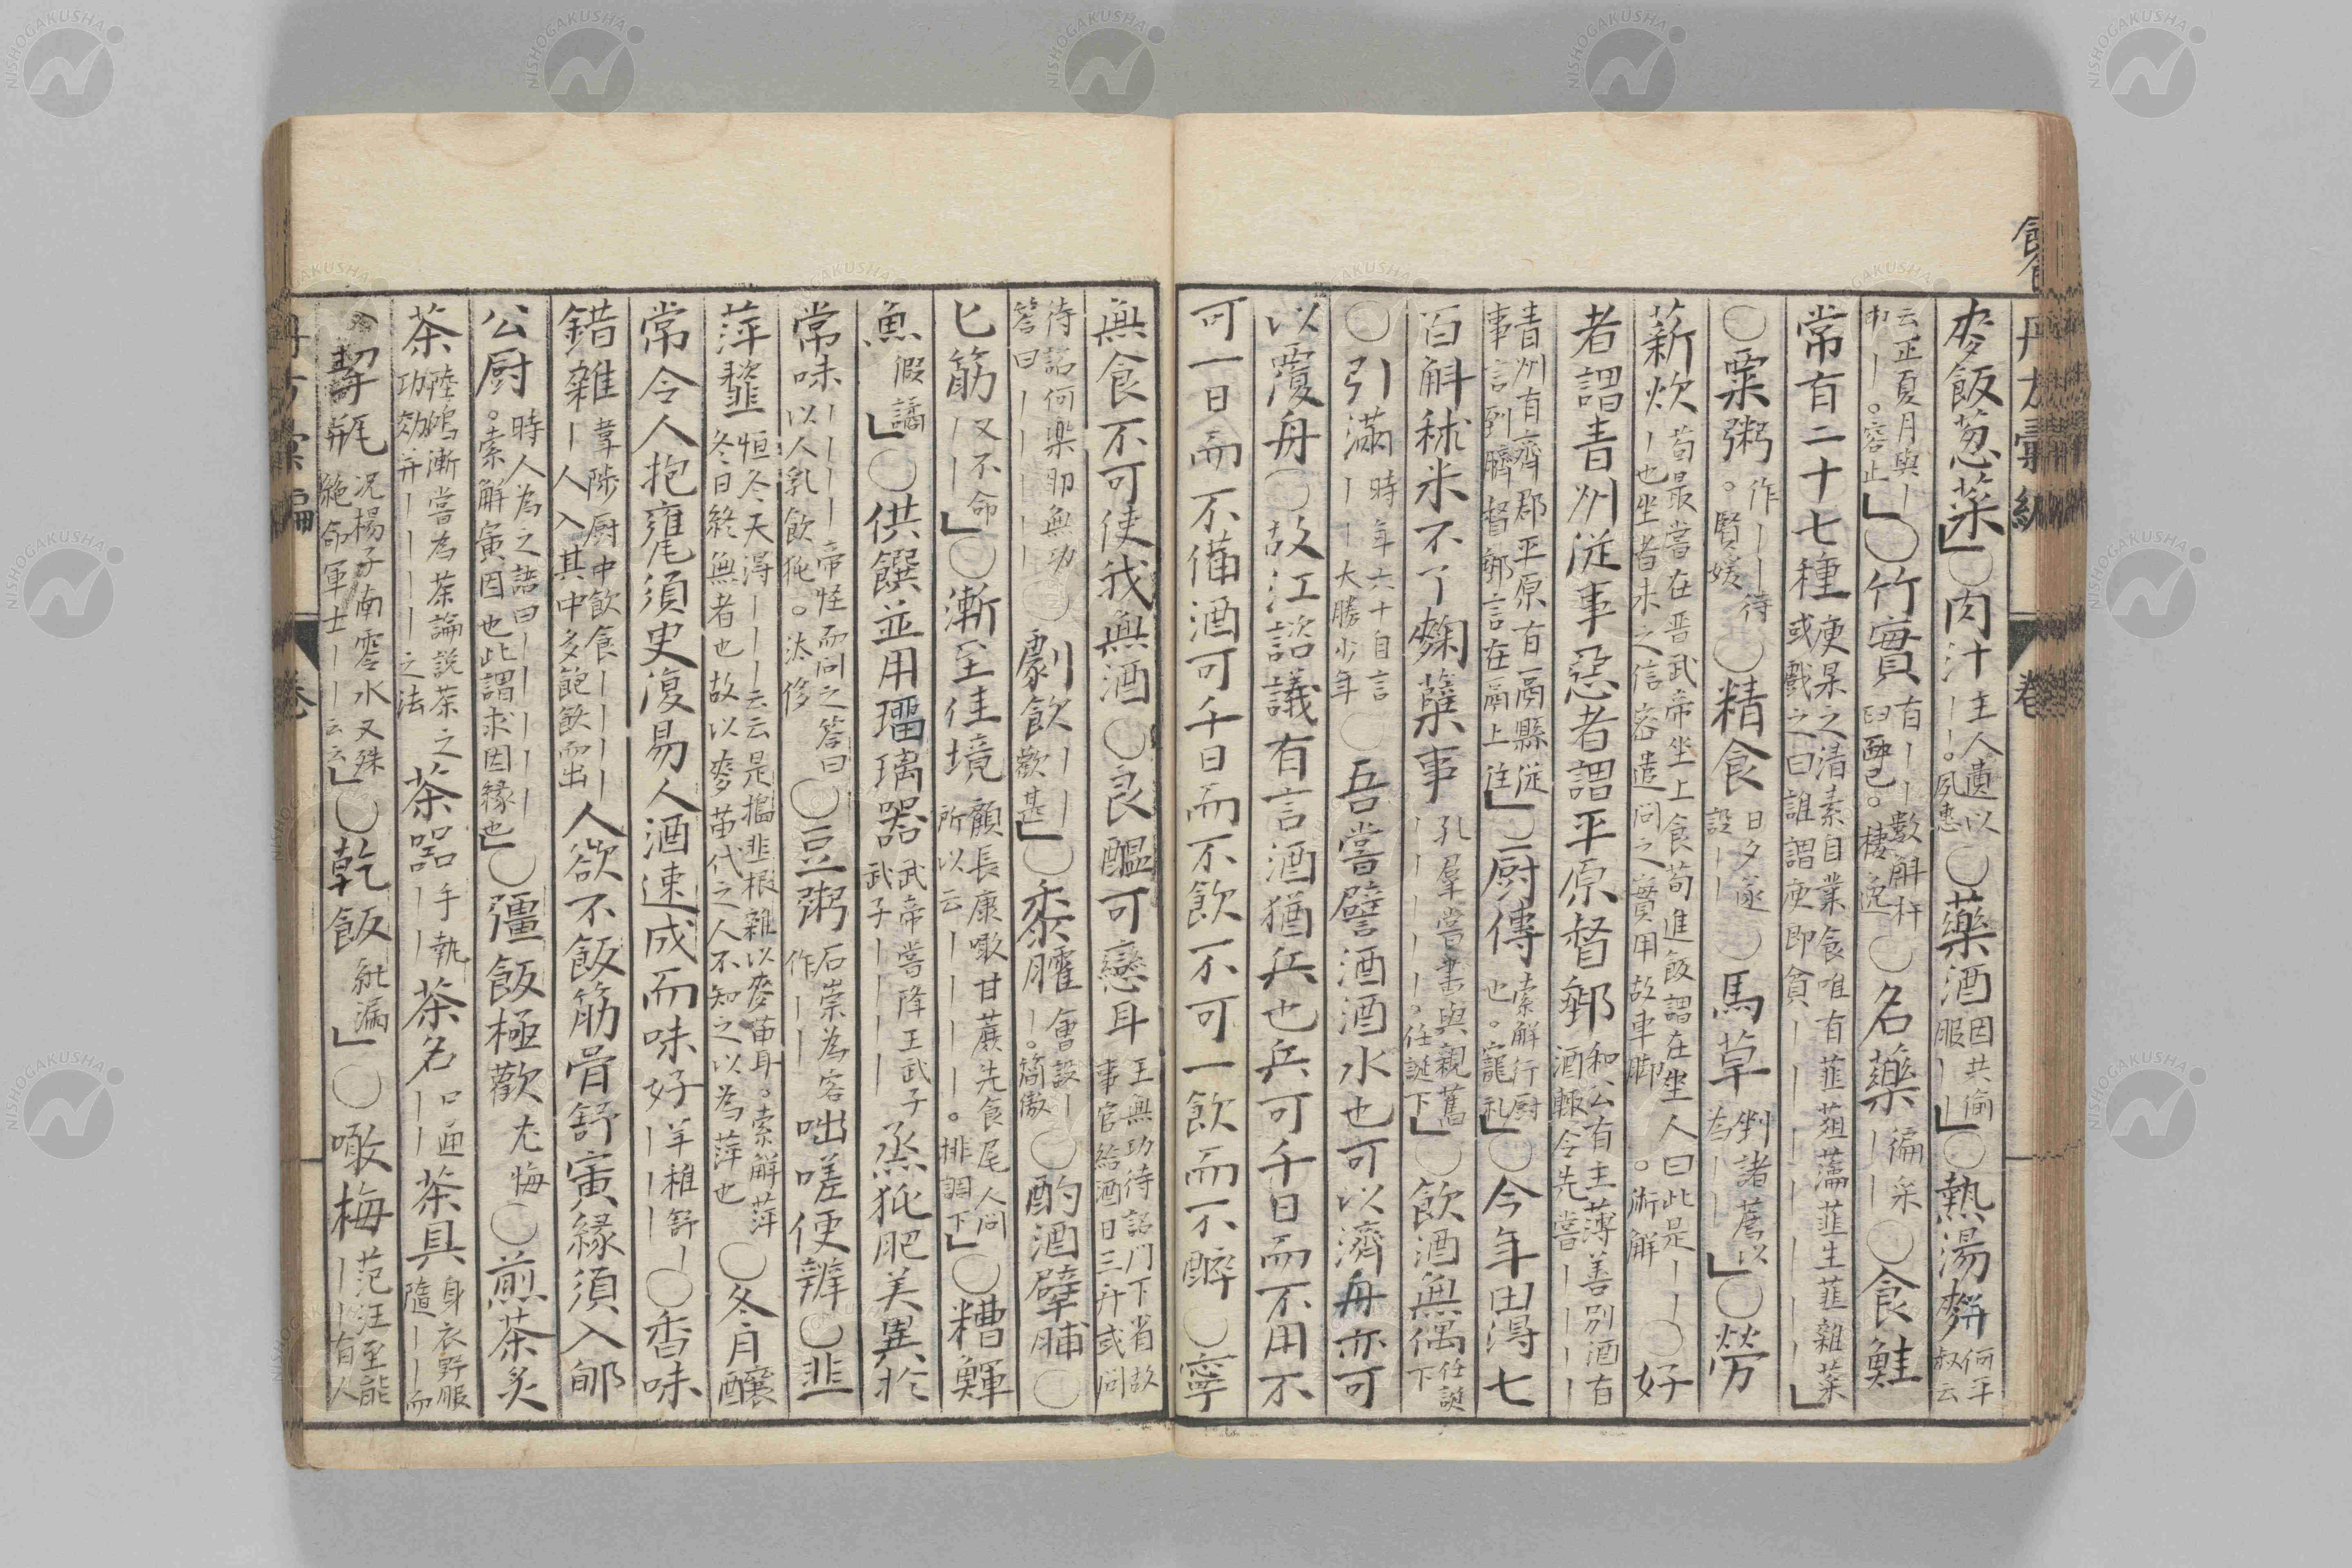 麥飯葱菜」〇肉汁主人遺以丨丨。夙惠〇藥酒因共偷服丨丨」〇熱湯䴵何平叔云
云正夏月與丨巾丨。容止」〇竹實有丨丨數斛杵臼熙已。棲逸〇名藥徧采丨丨〇食鮭
常有二十七種庾杲之清素自業食唯有韮葅瀹韮生韮雜菜或戲之曰誰謂庾郎貧丨丨丨丨丨丨丨」
〇粟粥作丨丨待。賢媛〇精食日夕遂設丨丨〇馬草剉諸薦以為丨丨」〇勞
薪炊荀最嘗在晋武帝坐上食筍進飯謂在坐人曰此是丨丨丨也坐者未之信密遣問之實用故車脚。術解〇好
者謂青州從事惡者謂平原督郵和公有主薄善別酒有酒輙令先嘗丨丨丨丨
青州有齊郡平原有鬲縣從事言到臍督郵言在鬲上住」〇厨傳索解行厨也。寵礼」〇今年田得七
百斛秫米不了麴糵事孔羣嘗書與親舊丨丨丨丨丨。任誕下」〇飲酒無偶任誕下
〇引滿時年六十自言丨丨大勝少年〇吾嘗譬酒酒水也可以濟舟亦可
以覆舟〇故江諮議有言酒猶兵也兵可千日而不用不
可一日而不備酒可千日而不飲不可一飲而不醉〇寧
無食不可使我無酒〇良醞可戀耳王無功待詔門下省故事官給酒日三升或問
待詔何樂耶無功答曰丨丨丨丨〇劇飲丨丨歡甚」〇黍臛會設丨丨。簡傲〇酌酒擘脯〇
匕筯又不命丨丨」〇漸至佳境顧長康噉甘蔗先食尾人問所以云丨丨丨丨。排調下」〇糟䱉
魚假譎」〇供饌並用瑠璃器武帝嘗降王武子武子丨丨丨丨烝㹠肥美異於
常味丨丨丨丨帝怪而問之答曰以人乳飲㹠。汰侈〇豆粥石崇為客作丨丨咄嗟便辨〇韭
萍虀恒冬天得丨丨丨云云是搗韭根雜以麥苗耳。索解萍冬日終無者也故以麥苗代之人不知之以為萍也〇冬月釀
常令人抱甕須史復易人酒速成而味好羊稚舒丨丨丨丨〇香味
錯雜韋陟厨中飲食丨丨丨丨人入其中多飽飫而出人欲不飯筋骨舒寅緣須入郇
公厨時人為之語曰丨丨丨丨丨。索解寅因也此謂求因緣也」〇彊飯極歡尤悔〇煎茶炙
茶陸鴻漸嘗為茶論説茶之功効并丨丨丨丨之法茶器手執丨丨茶名口通丨丨茶具身衣野服隨丨丨而
入挈瓶况楊子南零水又殊絶命軍士丨丨云云」〇乾飯紕漏」〇噉梅范汪至能丨丨有人